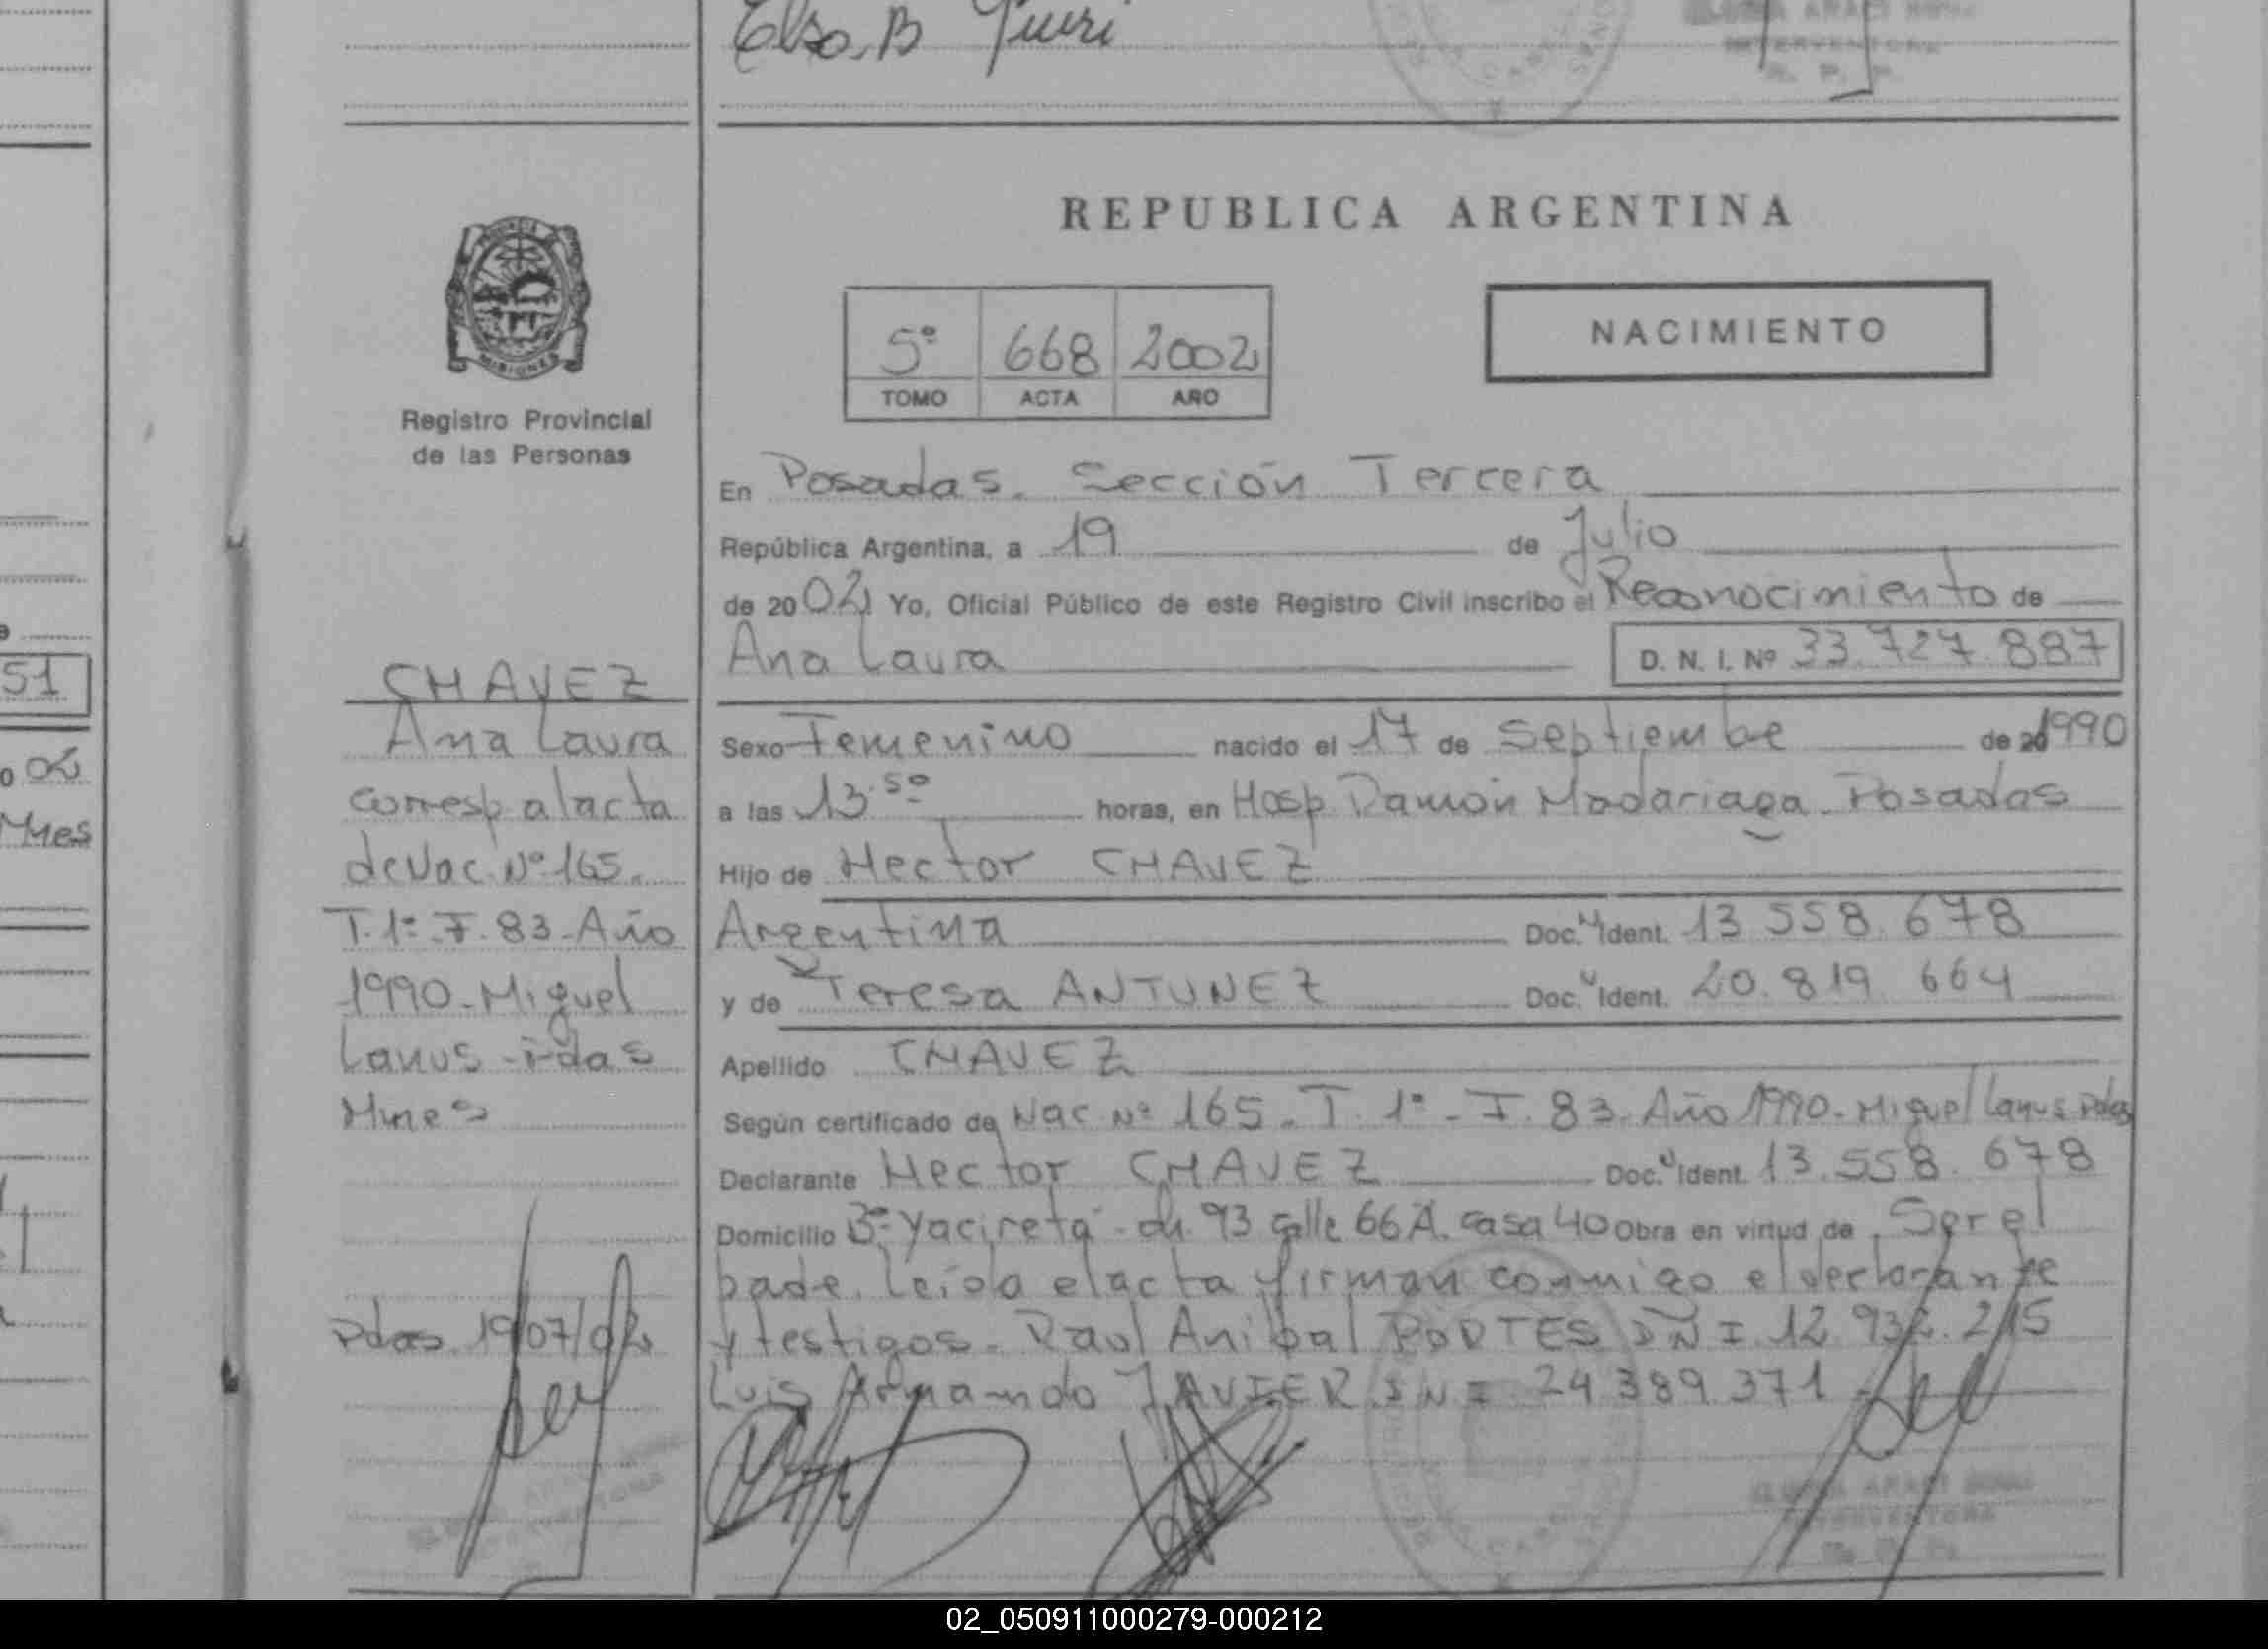 Elsa B
REPUBLICA ARGENTINA
MISIONES
Registro Provincial
de las Personas
5º 668 2002
TOMO ACTA AÑO
NACIMIENTO
En Posadas. Sección Tercera
República Argentina, a 19 de Julio
de 2002 Yo, Oficial Público de este Registro Civil inscribo el Reconocimiento de
Ana Laura D. N. I. Nº 33.727.887
Sexo Femenino nacido el 17 de Septiembe de 20 1990
a las 13.50 horas, en Hosp Ramón Madariaga - Posadas
Hijo de Hector CHAVEZ
Argentina Doc. Ident. 13.558.678
y de Teresa ANTUNEZ Doc. Ident. 20.819.664
Apellido CHAVEZ
Según certificado de Nac Nº 165 - T. 1º - F. 83. Año 1990 - Miguel Lanus Pdas
Declarante Hector CHAVEZ Doc. Ident. 13.558.678
Domicilio Bº Yacireta - ch. 93 calle 66 A. casa 40 Obra en virtud de Ser el
pade. Leida el acta firman conmigo el declarante
y testigos - Raul Anibal PORTES DNI 12.932.215
Luis Armando JAVIER DNI 24.389.371
CHAVEZ
Ana Laura
corresp al acta
de Nac Nº 165.
T. 1º - F. 83 - Año
1990 - Miguel
Lanus - Pdas
Mnes
Pdas 19/07/02
51
02
Mnes
02_050911000279-000212